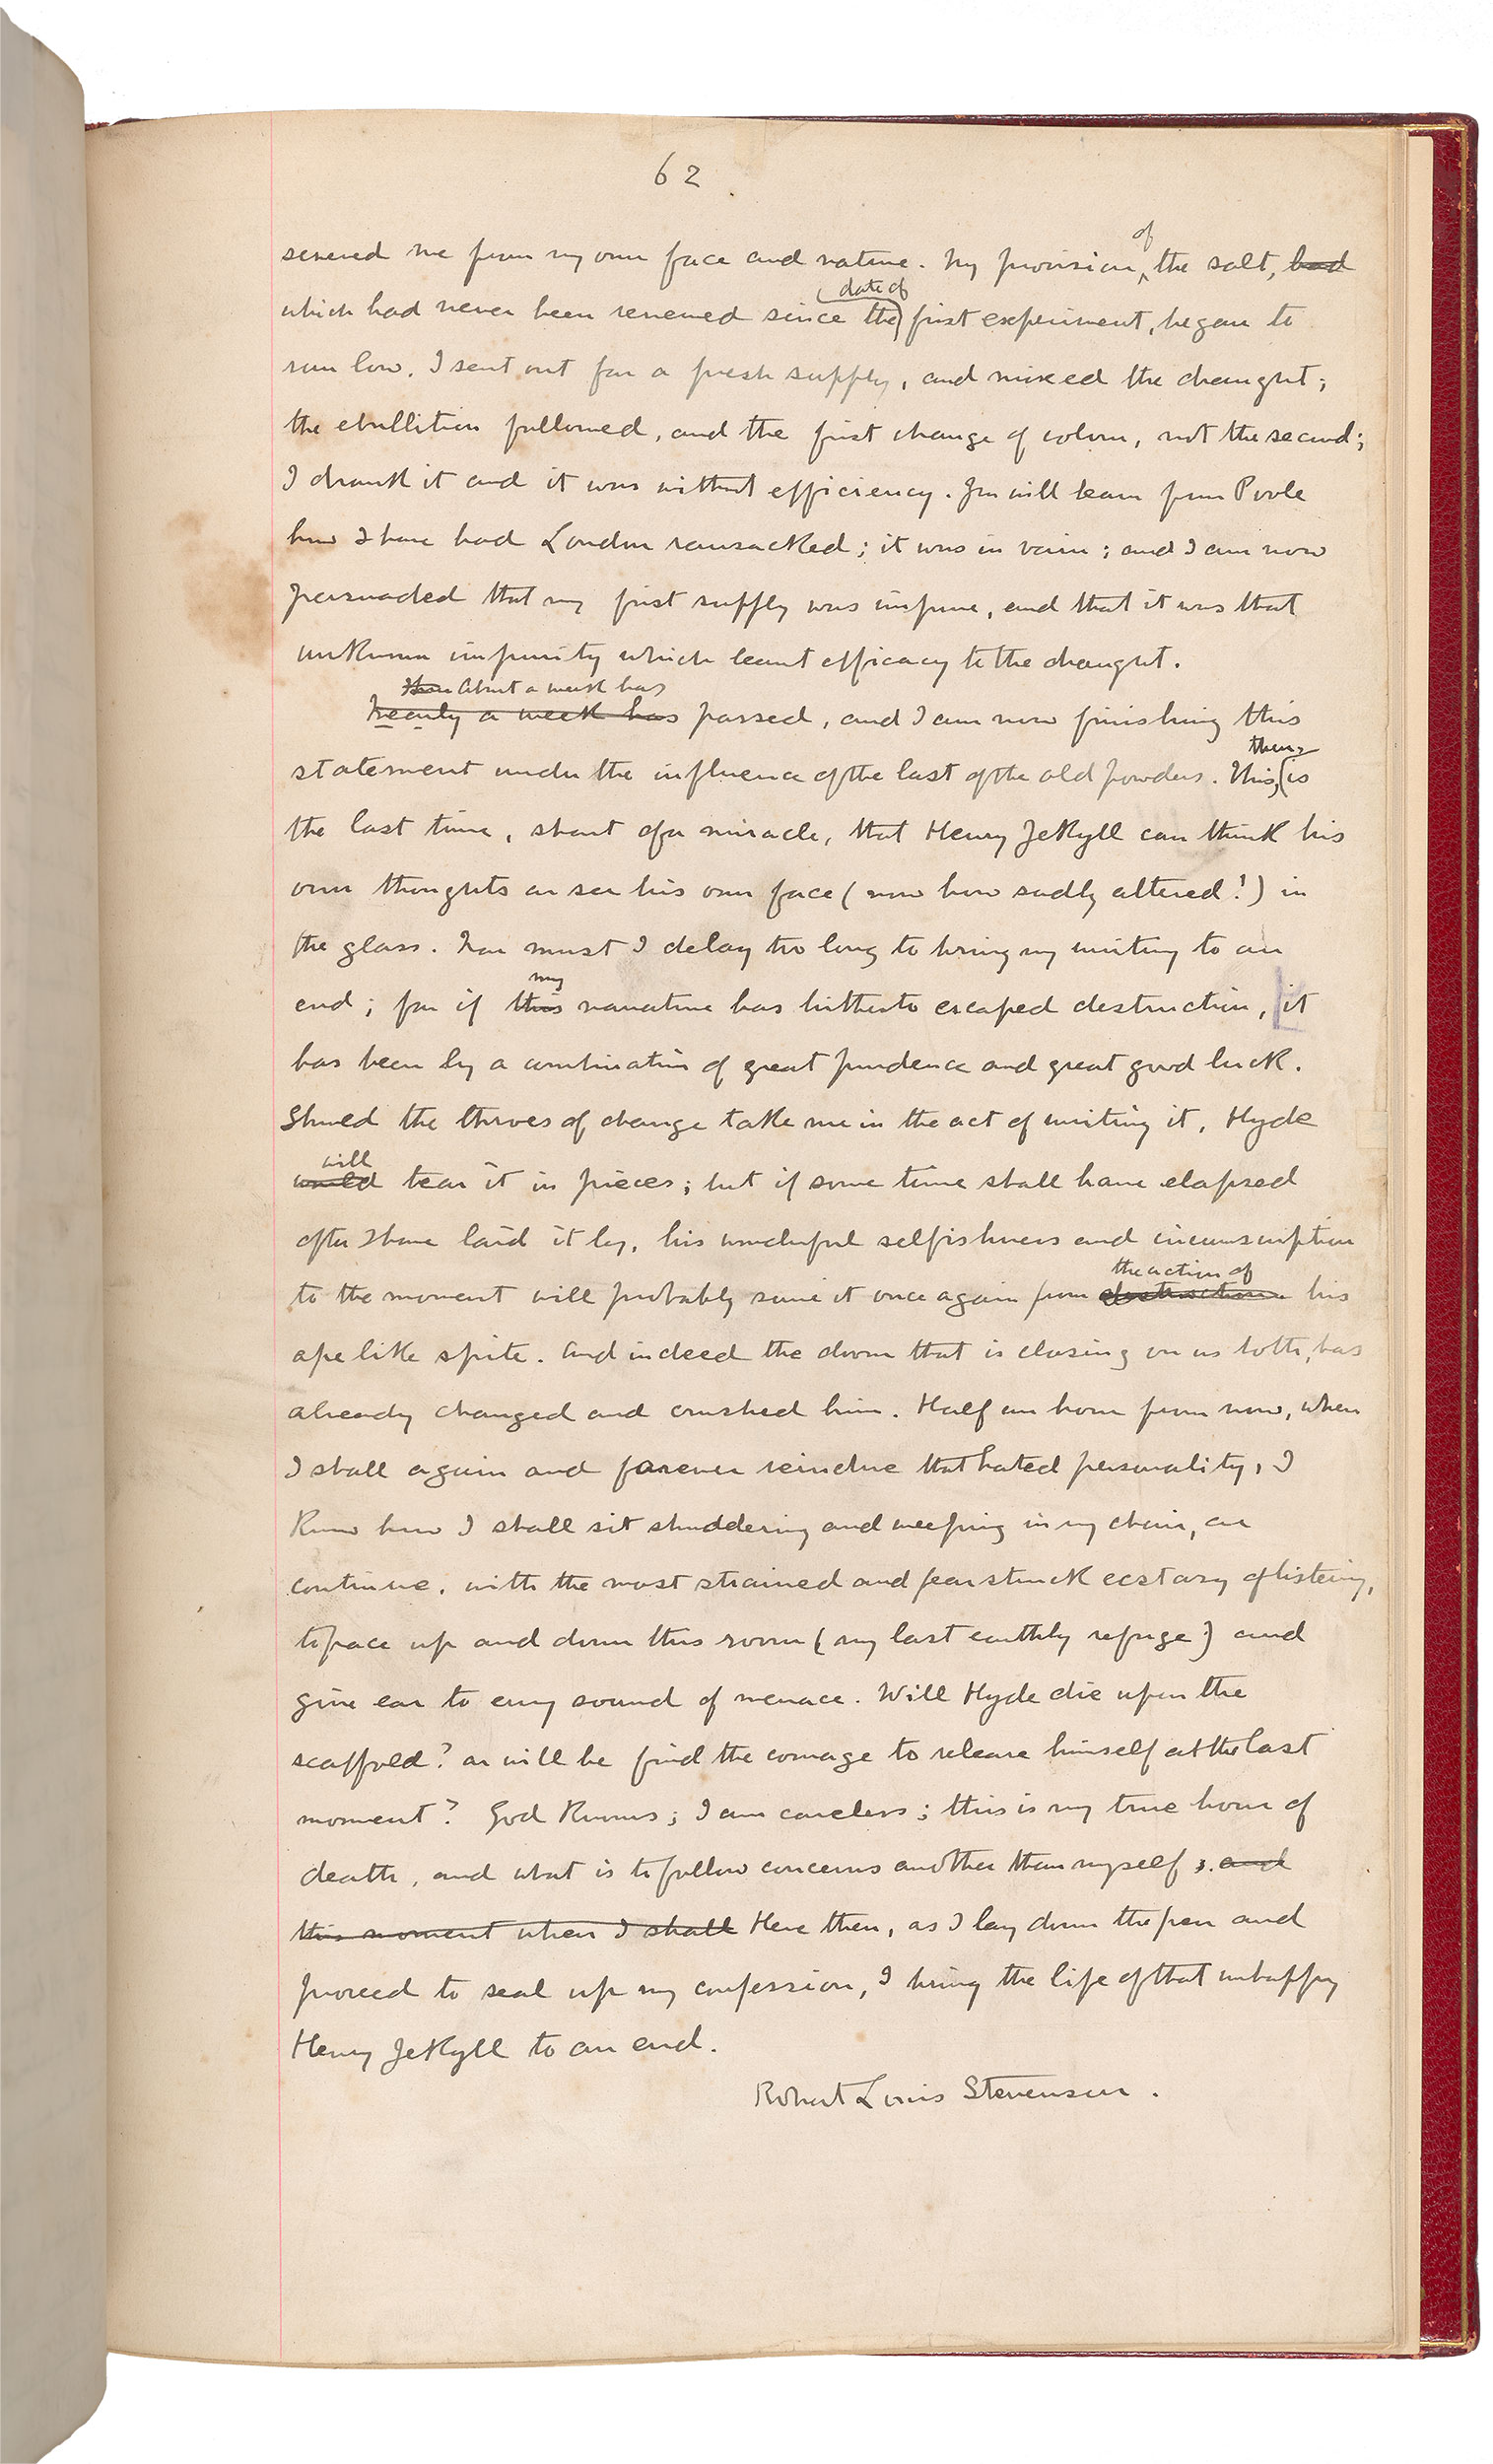 62
severed me from my own face and nature. My provision of the salt, had
which had never been renewed since the date of first experiment, began to
run low. I sent out for a fresh supply, and mixed the draught;
the ebullition followed, and the first change of colour, not the second;
I drank it and it was without efficiency. You will learn from Poole
how I have had London ransacked; it was in vain; and I am now
persuaded that my first supply was impure, and that it was that
unknown impurity which leant efficacy to the draught.
About a week has
Nearly a week has passed, and I am now finishing this
statement under the influence of the last of the old powders. This, then, is
the last time, short of a miracle, that Henry Jekyll can think his
own thoughts or see his own face (now how sadly altered!) in
the glass. Nor must I delay too long to bring my writing to an
my
end; for if this narrative has hitherto escaped destruction, it
has been by a combination of great prudence and great good luck.
Should the throes of change take me in the act of writing it, Hyde
will
would tear it in pieces; but if some time shall have elapsed
after I have laid it by, his wonderful selfishness and circumscription
the action of
to the moment will probably save it once again from destruction his
apelike spite. And indeed the doom that is closing on us both, has
already changed and crushed him. Half an hour from now, when
I shall again and forever reindue that hated personality, I
know how I shall sit shuddering and weeping in my chair, or
continue, with the most strained and fearstruck ecstasy of listening,
to pace up and down this room (my last earthly refuge) and
give ear to every sound of menace. Will Hyde die upon the
scaffold? or will he find the courage to release himself at the last
moment? God knows; I am careless; this is my true hour of
death, and what is to follow concerns another than myself. and
this moment when I shall Here then, as I lay down the pen and
proceed to seal up my confession, I bring the life of that unhappy
Henry Jekyll to an end.
Robert Louis Stevenson.